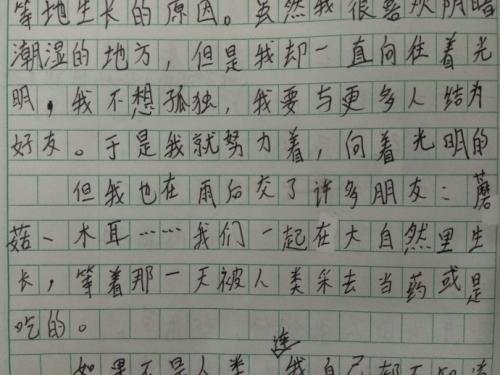 等地生长的原因。虽然我很喜欢阴暗
潮湿的地方，但是我却一直向往着光
明，我不想孤独，我要与更多人结为
好友。于是我就努力着，向着光明的
但我也在雨后交了许多朋友：蘑
菇、木耳……我们一起在大自然里生
长，等着那一天被人类采去当药或是
吃的。
如果不是人类连我自己都不知道